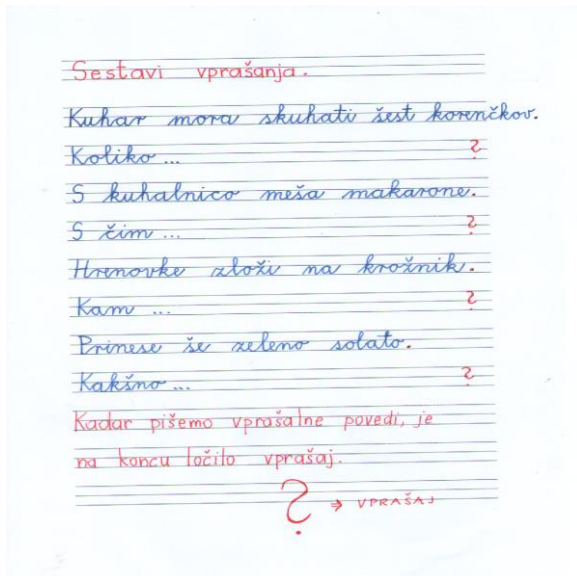 Sestavi vprašanja.
Kuhar mora skuhati šest korenčkov.
Koliko ... ?
S kuhalnico meša makarone.
S čim ... ?
Hrenovke zloži na krožnik.
Kam ... ?
Prinese še zeleno solato.
Kakšno ... ?
Kadar pišemo vprašalne povedi, je
na koncu ločilo vprašaj.
? → VPRAŠAJ